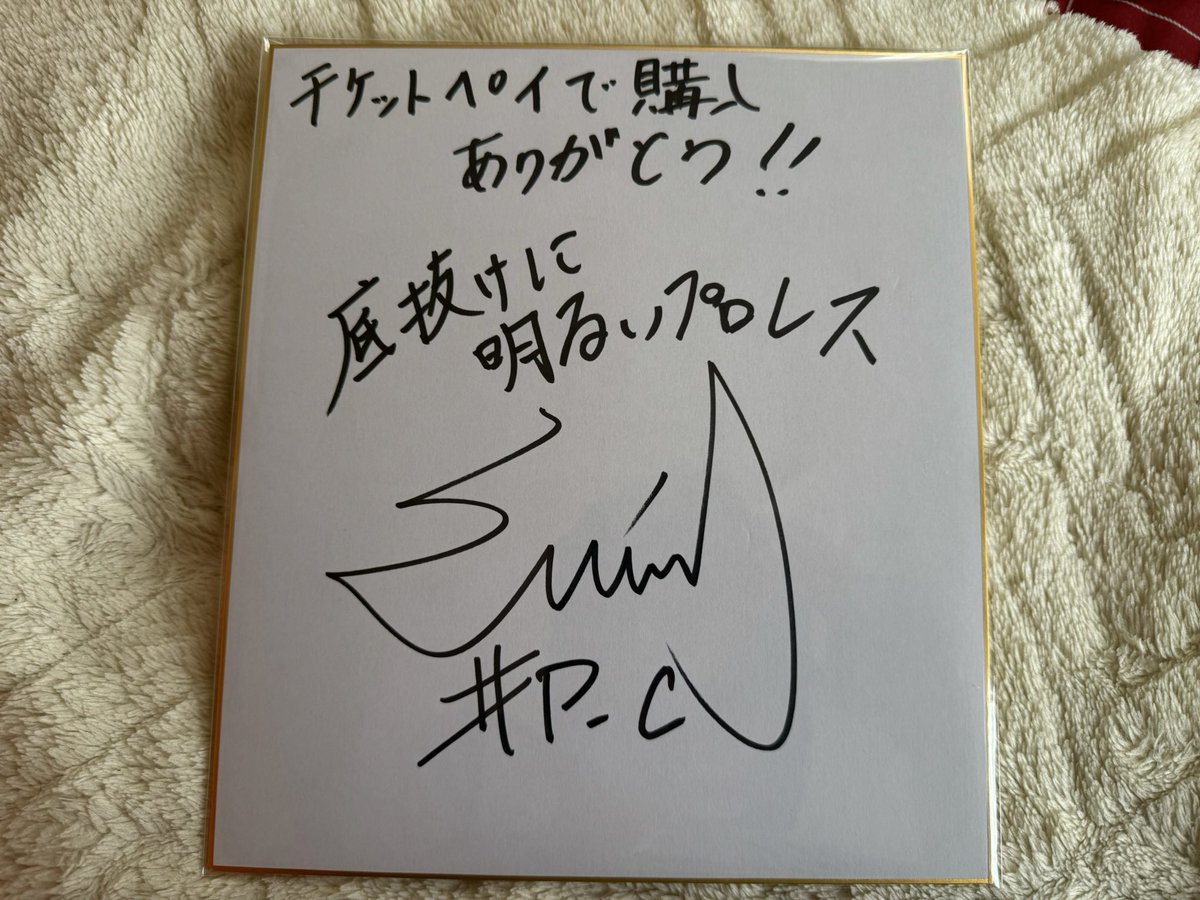 チケットペイで購入
ありがとう!!
底抜けに
明るいプロレス
#P-C